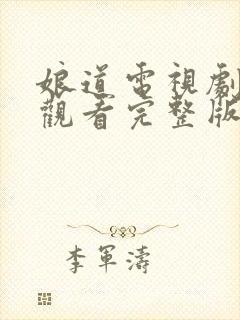 娘道電視劇
觀看完整版
李軍濤